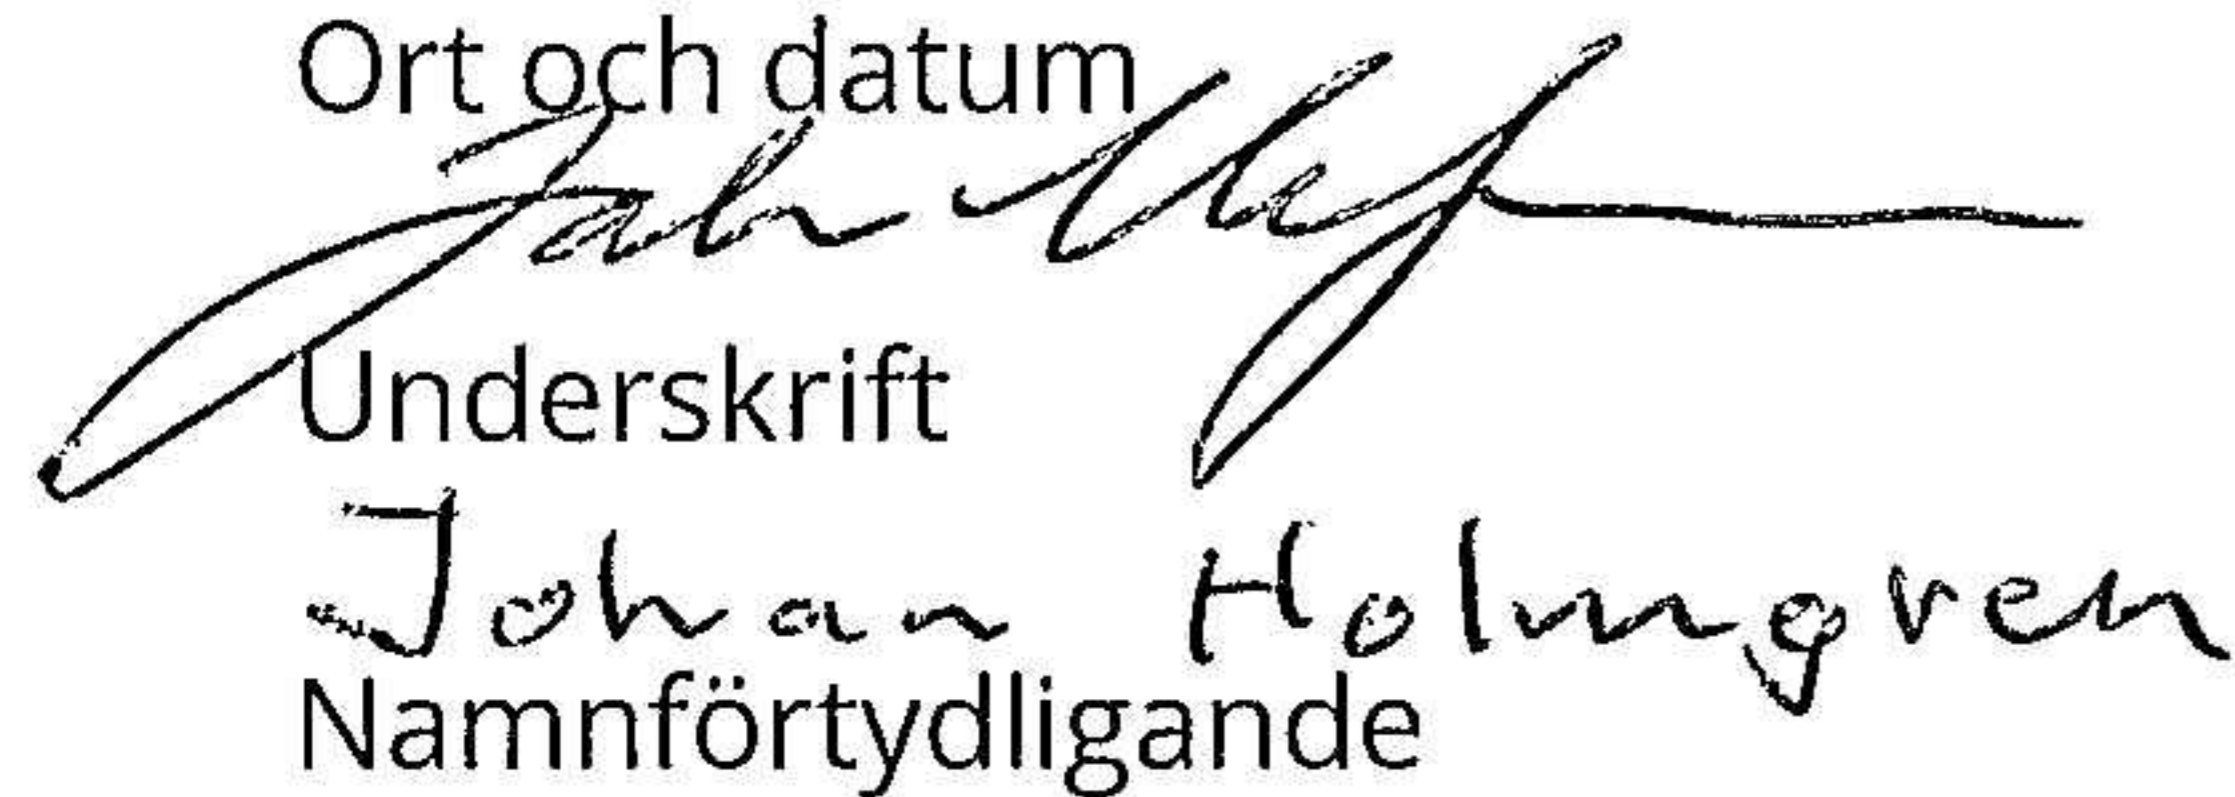 Ort och datum
Underskrift
Johan Holmgren
Namnförtydligande